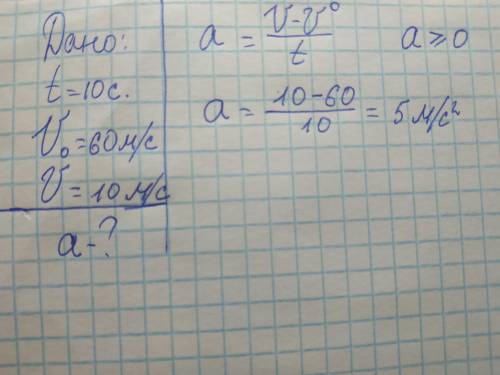 Дано:
t=10с.
V₀=60м/с
V=10м/с
a-?
a = (V-V⁰)/t a⩾0
a = (10-60)/10 = 5м/с²